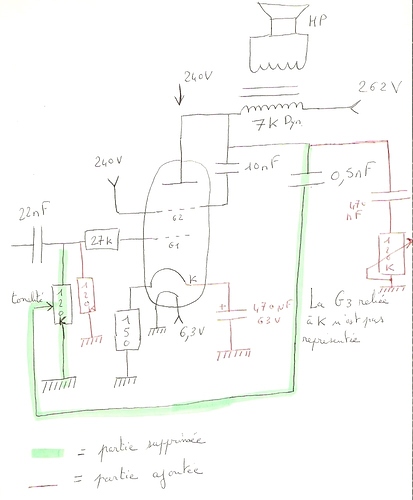 HP
240V
262V
7K Dyn
240V
10nF
0,5nF
22nF
G2
27k
G1
470
nF
tonalité
120K
120
K
150
6,3V
470µF
63V
La G3 reliée
à K n'est pas
representée
= partie supprimée
= partie ajoutée